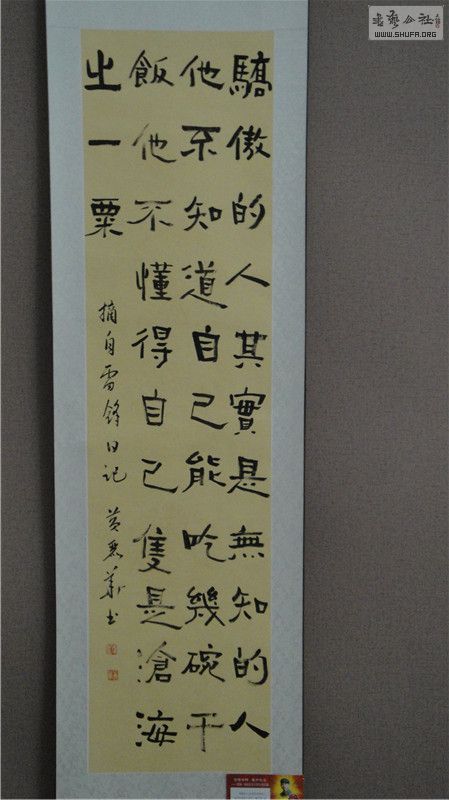 驕傲的人其實是無知的人
他不知道自己能吃幾碗干
飯他不懂得自己隻是滄海
之一粟
摘自雷鋒日记
书
書藝公社
WWW.SHUFA.ORG